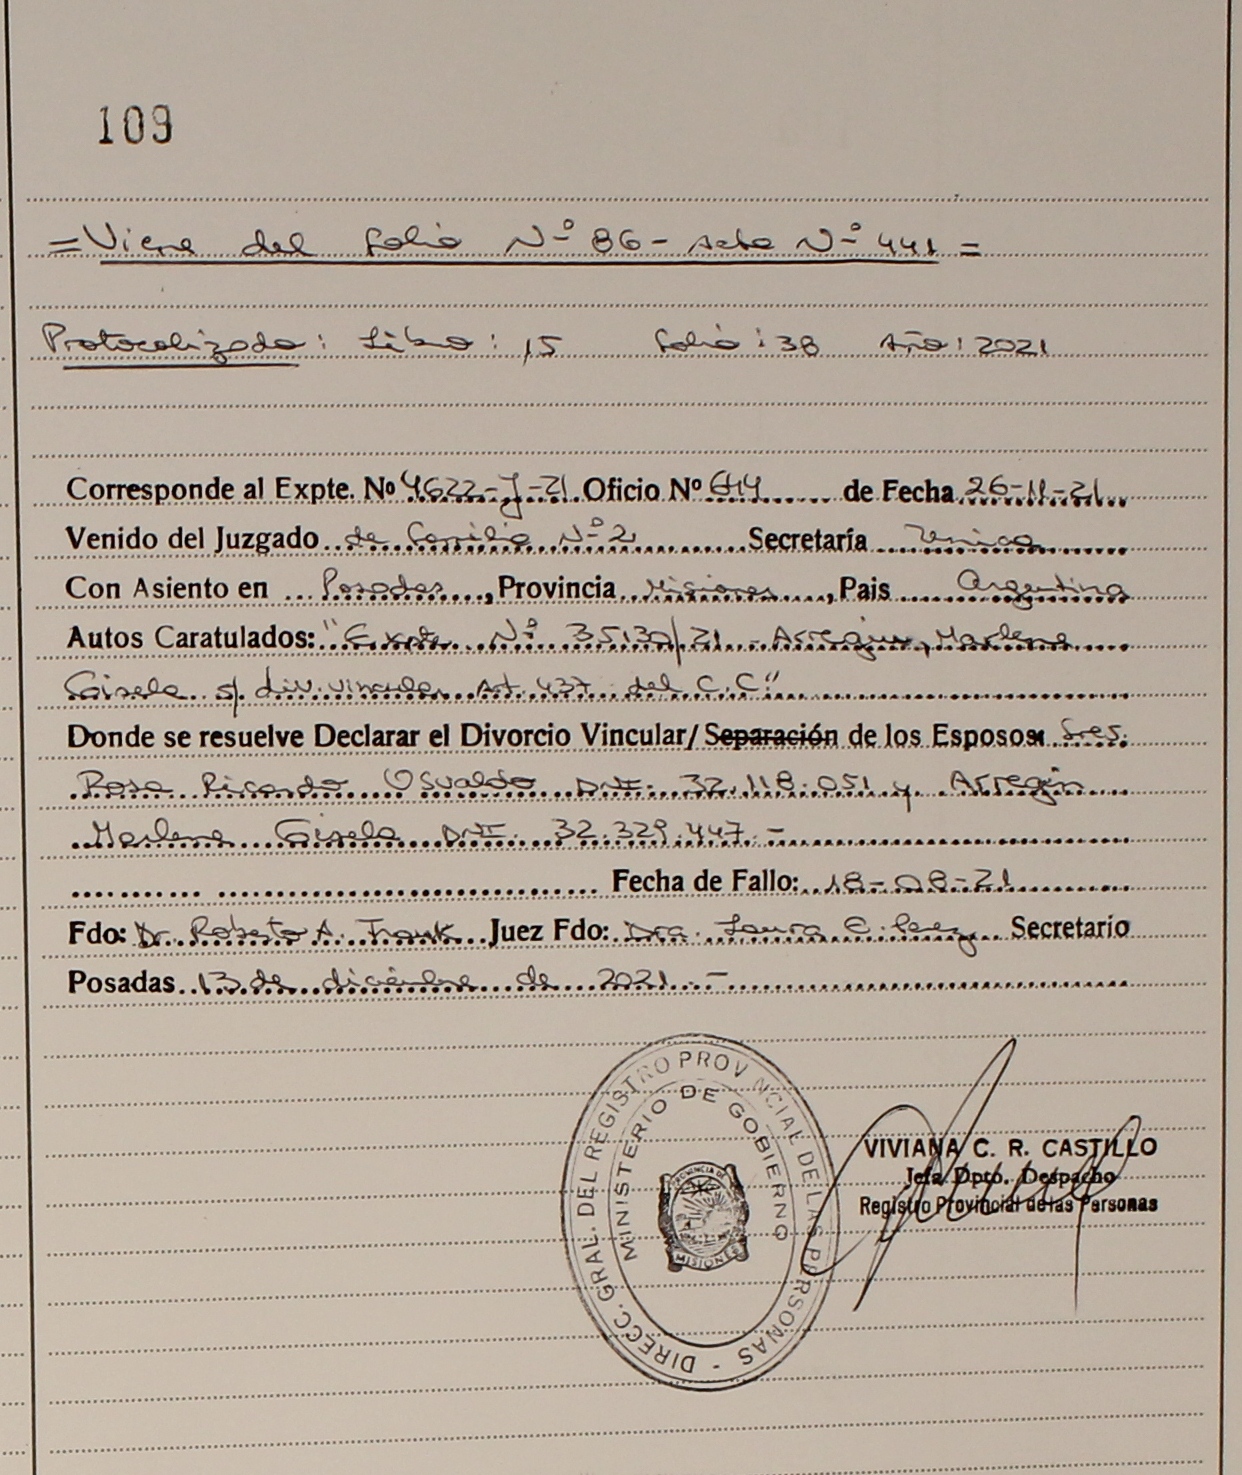 109
= Viene del folio Nº 86 - Acta Nº 441 =
Protocolizado: Libro: 15 folio: 38 Año: 2021
Corresponde al Expte. Nº 4622-J-21 Oficio Nº 614 de Fecha 26-11-21
Venido del Juzgado de Familia Nº 2 Secretaría Unica
Con Asiento en Posadas, Provincia Misiones, Pais Argentina
Autos Caratulados: "Expte. Nº 35130/21 - Arregin, Marlene
Gisela s/ div. vincular Art. 437 del C.C"
Donde se resuelve Declarar el Divorcio Vincular/Separación de los Esposos: Sres.
Rosa Ricardo Osvaldo DNI. 32.118.051 y Arregin
Marlene Gisela DNI. 32.329.447.-
Fecha de Fallo: 18-08-21
Fdo: Dr. Roberto A. Frank Juez Fdo: Dra. Laura C. Perez Secretario
Posadas 13 de diciembre de 2021.-
DIRECC. GRAL. DEL REGISTRO PROVINCIAL DE LAS PERSONAS -
MINISTERIO DE GOBIERNO
PROVINCIA DE
MISIONES
VIVIANA C. R. CASTILLO
Jefa Dpto. Despacho
Registro Provincial de las Personas